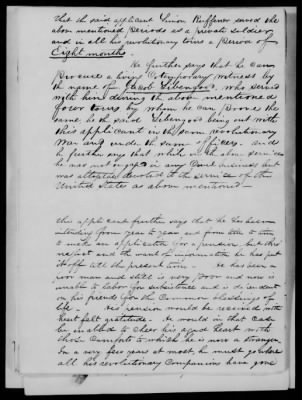 that the said applicant Simon Ruffner served the
above mentioned Periods as a private soldier
and in all his revolutionary tours a Period of
Eight months.
He further says that he can
Procure a living Cotemporary witness by
the name of Jacob Lebengood, who served
with him during the above mentioned
four tours by whom he can Prove the
same, he the said Lebengood being out with
this applicant in the same revolutionary
War and under the same officers. And
he further says that while in the above service
he was not engaged in any Civil business but
was altogether devoted to the service of the
United States as above mentioned —
this applicant further says that he has been
intending from year to year and from time to time
to make an application for a pension but thro
neglect and the want of information he has put
it off till the present time. He has been a
poor man and still is very Poor and now is
unable to labor for subsistence and is dependent
on his friends for the Common blessings of
life. His pension would be received with
heart felt gratitude. He would in that Case
be enabled to cheer his aged heart with
those Comforts to which he is now a stranger.
In a very few years at most he must go where
all his revolutionary Companions have gone